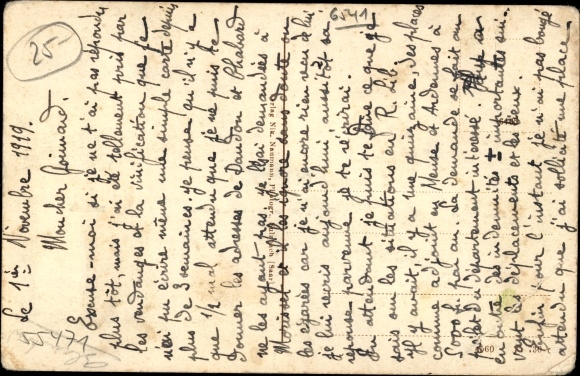 Le 1er Novembre 1919.
Mon cher Goinard,
Excuse-moi si je ne t'ai pas répondu
plus tôt, mais j'ai été tellement pris par
les vendanges et la vinification que je
n'ai pu écrire même une simple carte depuis
plus de 3 semaines. Je pense qu'il n'y a
que 1/2 mal attendu que je ne puis te
donner les adresses de Daudon et Rhabard
ne les ayant pas. Je les ai demandées à
Morisot et il les ignore sans doute ou
les égarées car je n'ai encore rien reçu de lui
je lui récris aujourd'hui aussitôt sa
réponse parvenue je te récrirai.
En attendant je puis te dire ce que je
sais sur les situations en R. Lib
Il y avait, il y a une quinzaine, des places
comme adjoint en Meuse et Ardennes à
5000 f par an. La demande se fait au
préfet du département intéressé.
en outre des indemnités ± importantes sui-
vant les déplacements et les lieux.
Enfin pour l'instant je n'ai pas bougé
attendu que j'ai sollicité une place
25
6541
55471